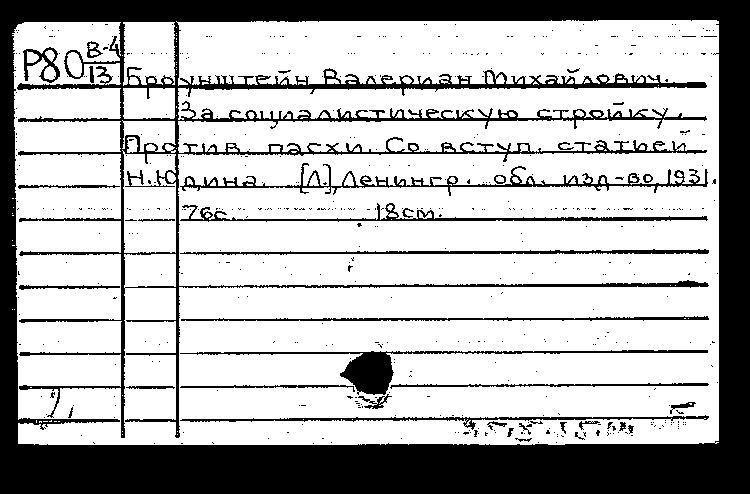 Р80 В-4/13 Броунштейн, Валериан Михайлович.
За социалистическую стройку.
Против пасхи. Со вступ. статьей
Н.Юдина. [Л.], Ленингр. обл. изд-во, 1931.
76с. 18см.
2,